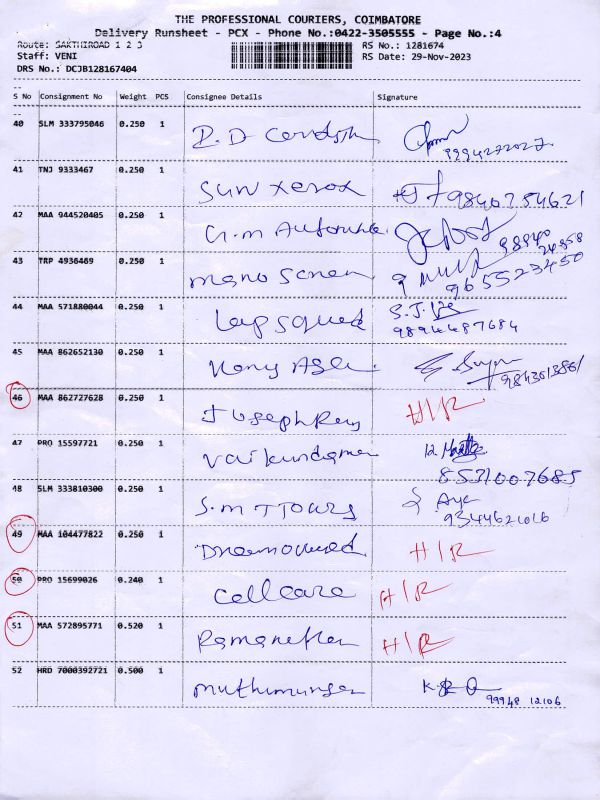 THE PROFESSIONAL COURIERS, COIMBATORE
Delivery Runsheet - PCX - Phone No.:0422-3505555 - Page No.:4
Route: SAKTHIROAD 1 2 3 RS No.: 1281674
Staff: VENI RS Date: 29-Nov-2023
DRS No.: DCJB128167404
S No Consignment No Weight PCS Consignee Details Signature
40 SLM 333795046 0.250 1
41 TNJ 9333467 0.250 1 Sun Xerox 9840754621
42 MAA 944520405 0.250 1 98940
43 TRP 4936469 0.250 1 9655223450
44 MAA 571880044 0.250 1 Lap squad S.J.
9894487684
45 MAA 862652130 0.250 1
46 MAA 862727628 0.250 1 H/R
47 PRO 15597721 0.250 1 8531007685
48 SLM 333810300 0.250 1 S.M TTours
9344621016
49 MAA 104477822 0.250 1 H/R
50 PRO 15699026 0.240 1 Cell care H/R
51 MAA 572895771 0.520 1 H/R
52 HRD 7000392721 0.500 1 99948 12106